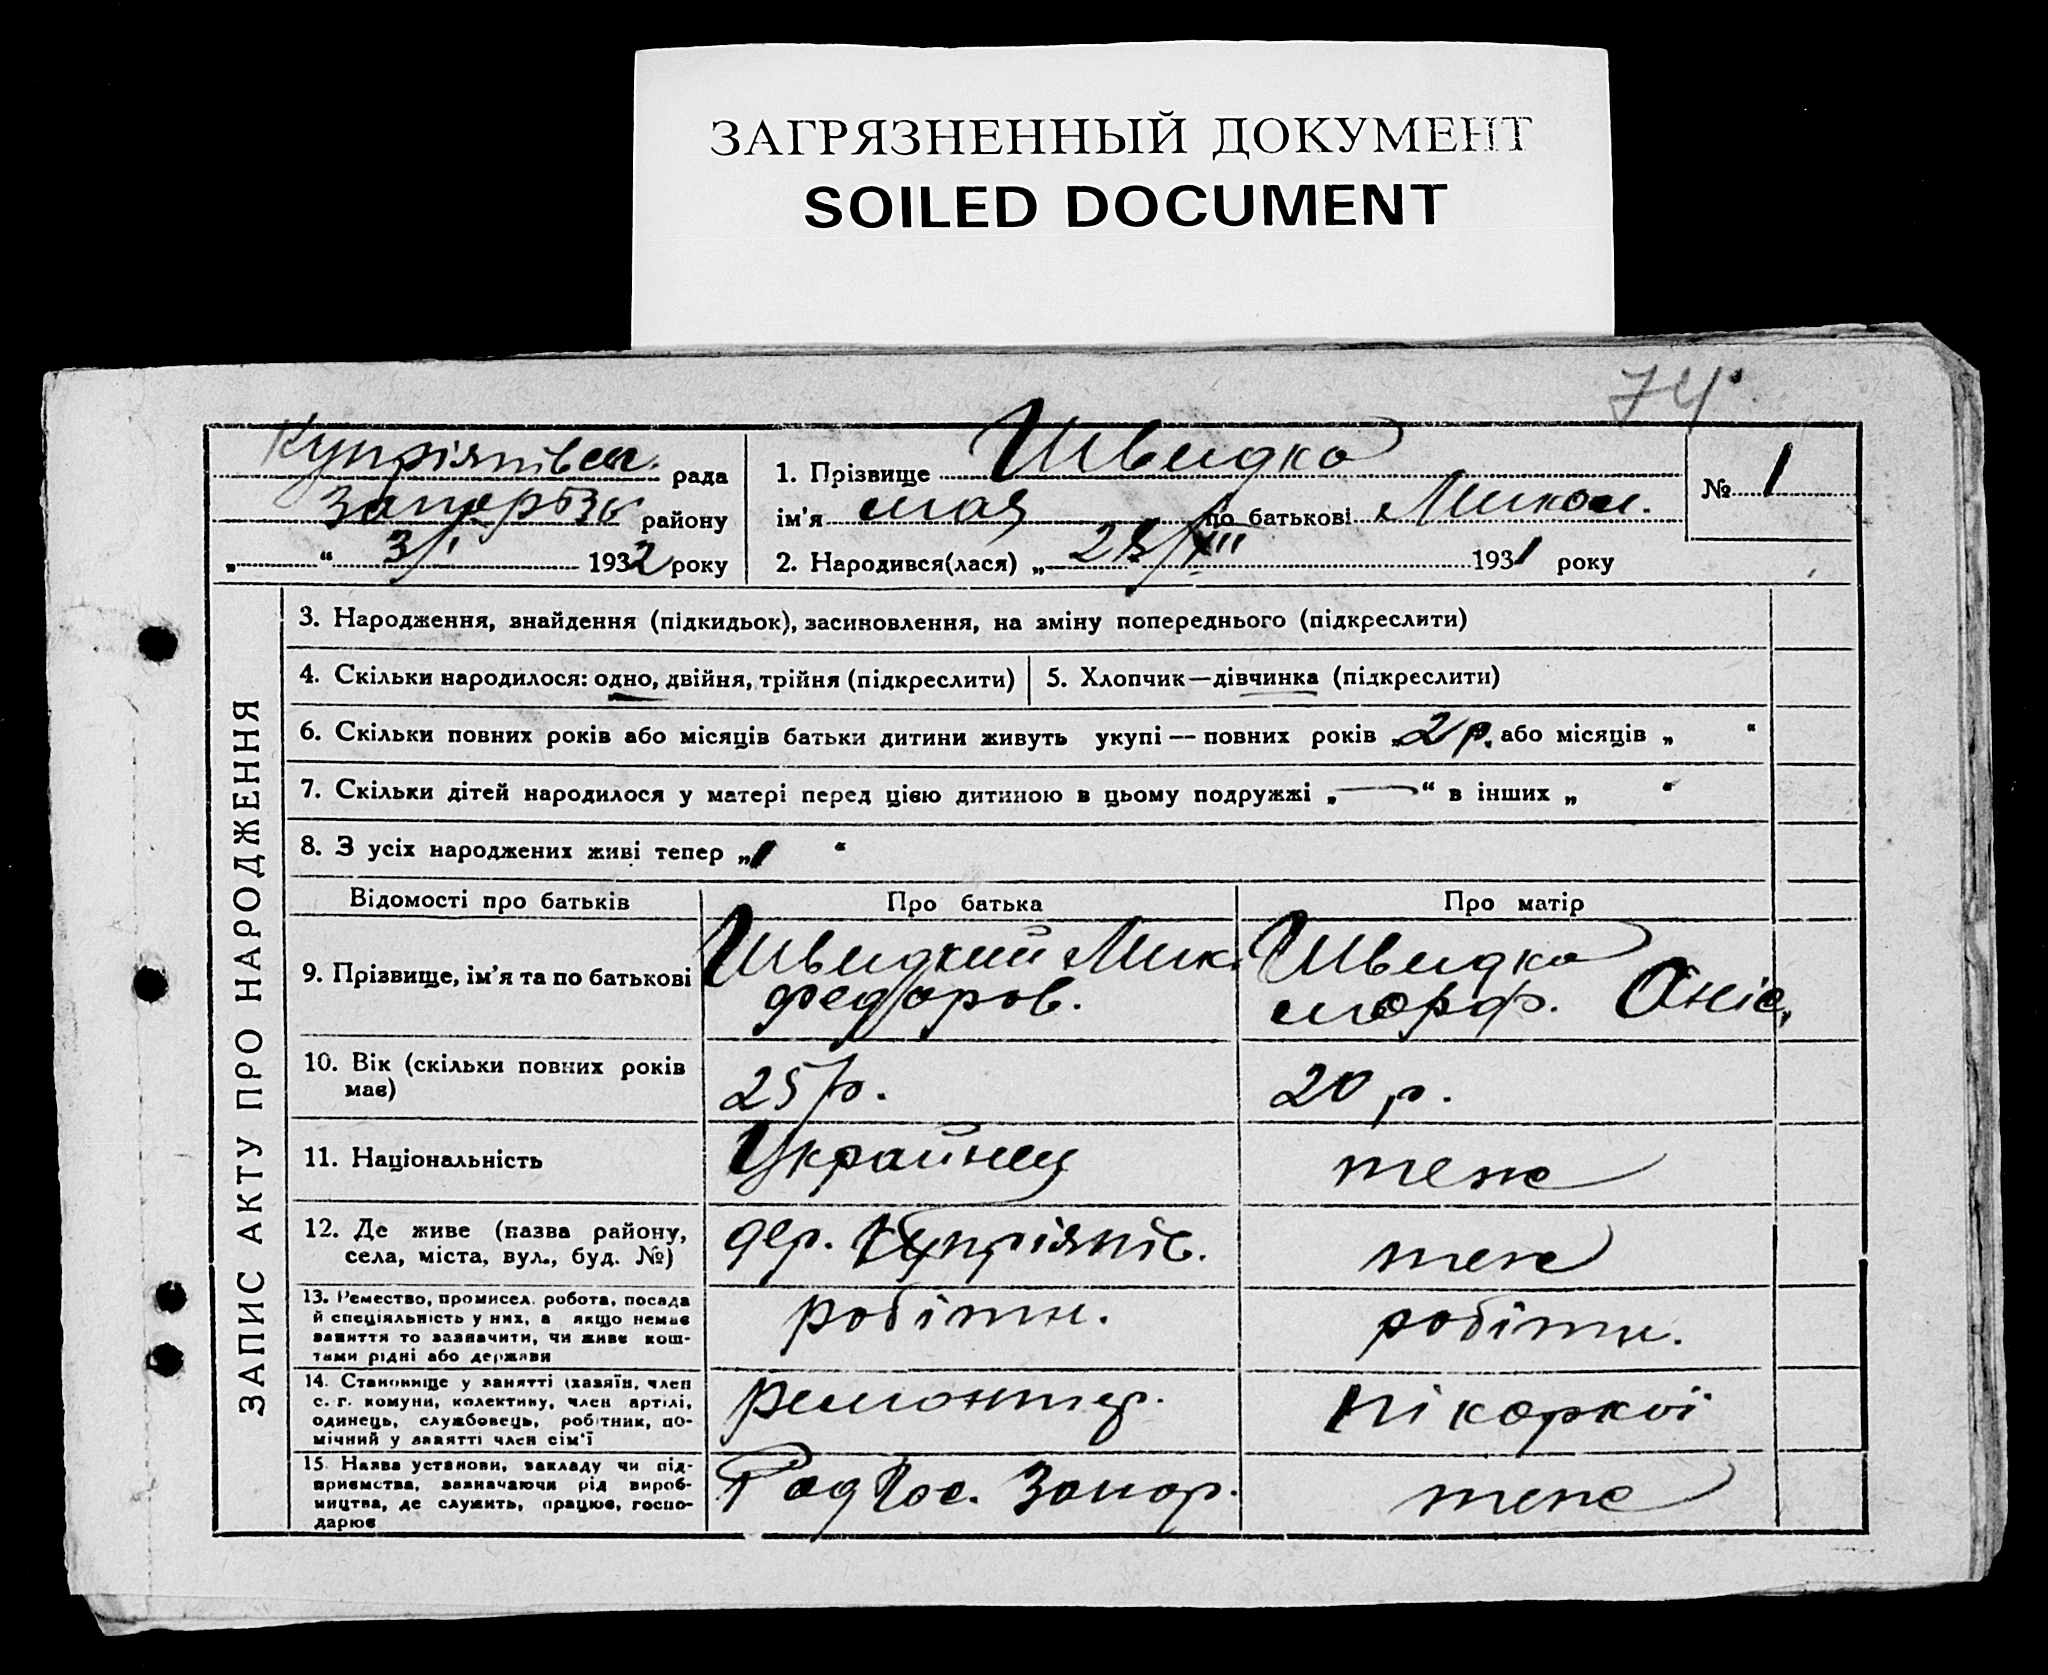 ЗАГРЯЗНЕННЫЙ ДОКУМЕНТ
SOILED DOCUMENT
74
Купріянівск. рада
Запорізьк району
„ “ 3/I 1932 року
1. Прізвище Швидка
ім’я по батькові Микол.
2. Народився(лася) „ 1931 року
№ 1
ЗАПИС АКТУ ПРО НАРОДЖЕННЯ
3. Народження, знайдення (підкидьок), засиновлення, на зміну попереднього (підкреслити)
4. Скільки народилося: одно, двійня, трійня (підкреслити)
5. Хлопчик—дівчинка (підкреслити)
6. Скільки повних років або місяців батьки дитини живуть укупі — повних років „2 р. або місяців „ “
7. Скільки дітей народилося у матері перед цією дитиною в цьому подружжі „—“ в інших „ “
8. З усіх народжених живі тепер „1 “
Відомості про батьків Про батька Про матір
9. Прізвище, ім’я та по батькові
Швидкий Мик.
Федоров.
Швидка
Марф. Оніс.
10. Вік (скільки повних років
має)
25 р.
20 р.
11. Національність
Украйнец
теж
12. Де живе (назва району,
села, міста, вул., буд. №)
дер. Купріянів.
теж
13. Ремество, промисел, робота, посада
й спеціяльність у них, а якщо немає
заняття то зазначити, чи живе кош-
тами рідні або держави
робітн.
робітн.
14. Становище у занятті (хазяїн, член
с.-г. комуни, колективу, член артілі,
одинець, службовець, робітник, по-
мічний у занятті член сім’ї
ремонтер.
15. Назва установи, закладу чи під-
приємства, зазначаючи рід вироб-
ництва, де служить, працює, госпо-
дарює
РадГос. Запор.
теж